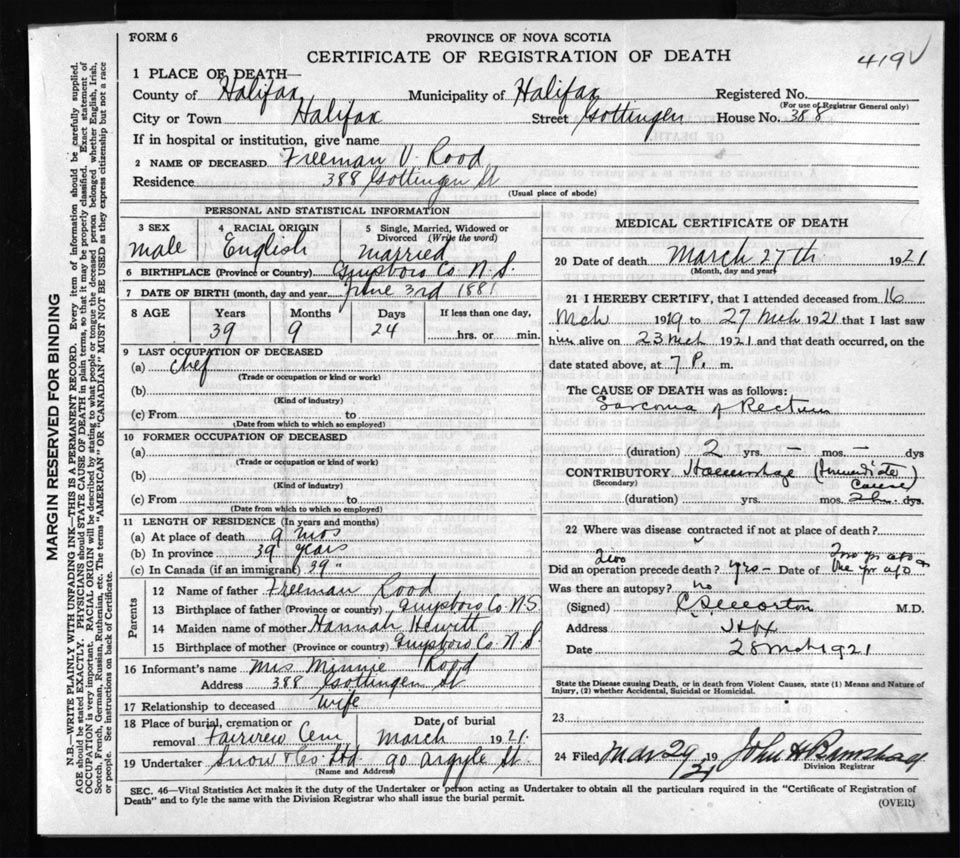 FORM 6
PROVINCE OF NOVA SCOTIA
CERTIFICATE OF REGISTRATION OF DEATH
419
1 PLACE OF DEATH—
County of Halifax Municipality of Halifax Registered No.
(For use of Registrar General only)
City or Town Halifax Street Gottingen House No. 388
If in hospital or institution, give name
2 NAME OF DECEASED Freeman V. Rood
Residence 388 Gottingen St
(Usual place of abode)
PERSONAL AND STATISTICAL INFORMATION
3 SEX 4 RACIAL ORIGIN 5 Single, Married, Widowed or Divorced (Write the word)
male English married
6 BIRTHPLACE (Province or Country) Guysboro Co. N.S.
7 DATE OF BIRTH (month, day and year) June 3rd 1881
8 AGE Years Months Days If less than one day,
39 9 24 hrs. or min.
9 LAST OCCUPATION OF DECEASED
(a) chef
(Trade or occupation or kind or work)
(b)
(Kind of industry)
(c) From to
(Date from which to which so employed)
10 FORMER OCCUPATION OF DECEASED
(a)
(Trade or occupation or kind of work)
(b)
(Kind of industry)
(c) From to
(Date from which to which so employed)
11 LENGTH OF RESIDENCE (In years and months)
(a) At place of death 9 mos
(b) In province 39 years
(c) In Canada (if an immigrant) 39 "
Parents
12 Name of father Freeman Rood
13 Birthplace of father (Province or country) Guysboro Co. N.S
14 Maiden name of mother Hannah Hewitt
15 Birthplace of mother (Province or country) Guysboro Co. N.S
16 Informant's name Mrs Minnie Rood
Address 388 Gottingen St
17 Relationship to deceased Wife
18 Place of burial, cremation or removal Fairview Cem Date of burial March 1921.
19 Undertaker Snow & Co. Ltd 90 Argyle St.
(Name and Address)
MEDICAL CERTIFICATE OF DEATH
20 Date of death March 27th 1921
(Month, day and year)
21 I HEREBY CERTIFY, that I attended deceased from 16
Mch 1919 to 27 Mch 1921 that I last saw
him alive on 23 Mch 1921 and that death occurred, on the
date stated above, at 7 P. m.
The CAUSE OF DEATH was as follows:
Sarcoma of Rectum
(duration) 2 yrs. — mos. — dys
CONTRIBUTORY Haemorrhage (Immediate Cause)
(Secondary)
(duration) yrs. mos. dys.
22 Where was disease contracted if not at place of death?
Two
Did an operation precede death? yrs - Date of One yr ago
Was there an autopsy? no
(Signed) M.D.
Address Hfx
Date 28 Mch 1921
State the Disease causing Death, or in death from Violent Causes, state (1) Means and Nature of
Injury, (2) whether Accidental, Suicidal or Homicidal.
23
24 Filed Mar 29 1921 John H
Division Registrar
SEC. 46—Vital Statistics Act makes it the duty of the Undertaker or person acting as Undertaker to obtain all the particulars required in the "Certificate of Registration of
Death" and to fyle the same with the Division Registrar who shall issue the burial permit.
(OVER)
MARGIN RESERVED FOR BINDING
N.B.—WRITE PLAINLY WITH UNFADING INK—THIS IS A PERMANENT RECORD. Every item of information should be carefully supplied.
AGE should be stated EXACTLY. PHYSICIANS should STATE CAUSE OF DEATH in plain terms, so that it may be properly classified. Exact statement of
OCCUPATION is very important. RACIAL ORIGIN will be described by stating to what people or tongue the deceased person belonged whether English, Irish,
Scotch, French, German, Russian, Ruthenian, etc. The terms "AMERICAN" OR "CANADIAN" MUST NOT BE USED as they express citizenship but not a race
or people. See instructions on back of Certificate.